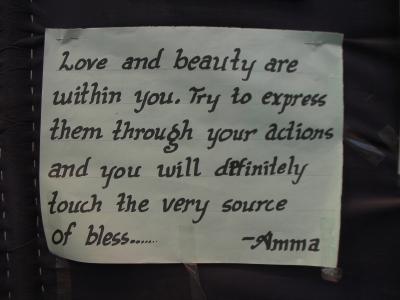 Love and beauty are
within you. Try to express
them through your actions
and you will definitely
touch the very source
of bless......
-Amma